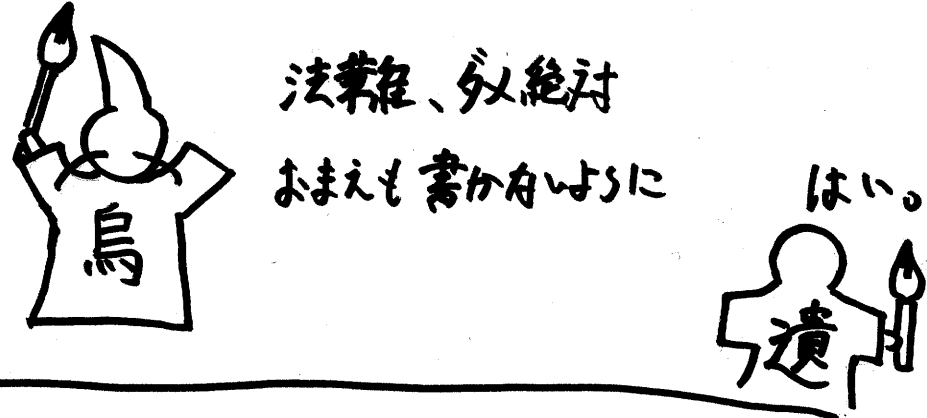 法華経、ダメ絶対
おまえも書かないように
はい。
烏
遺